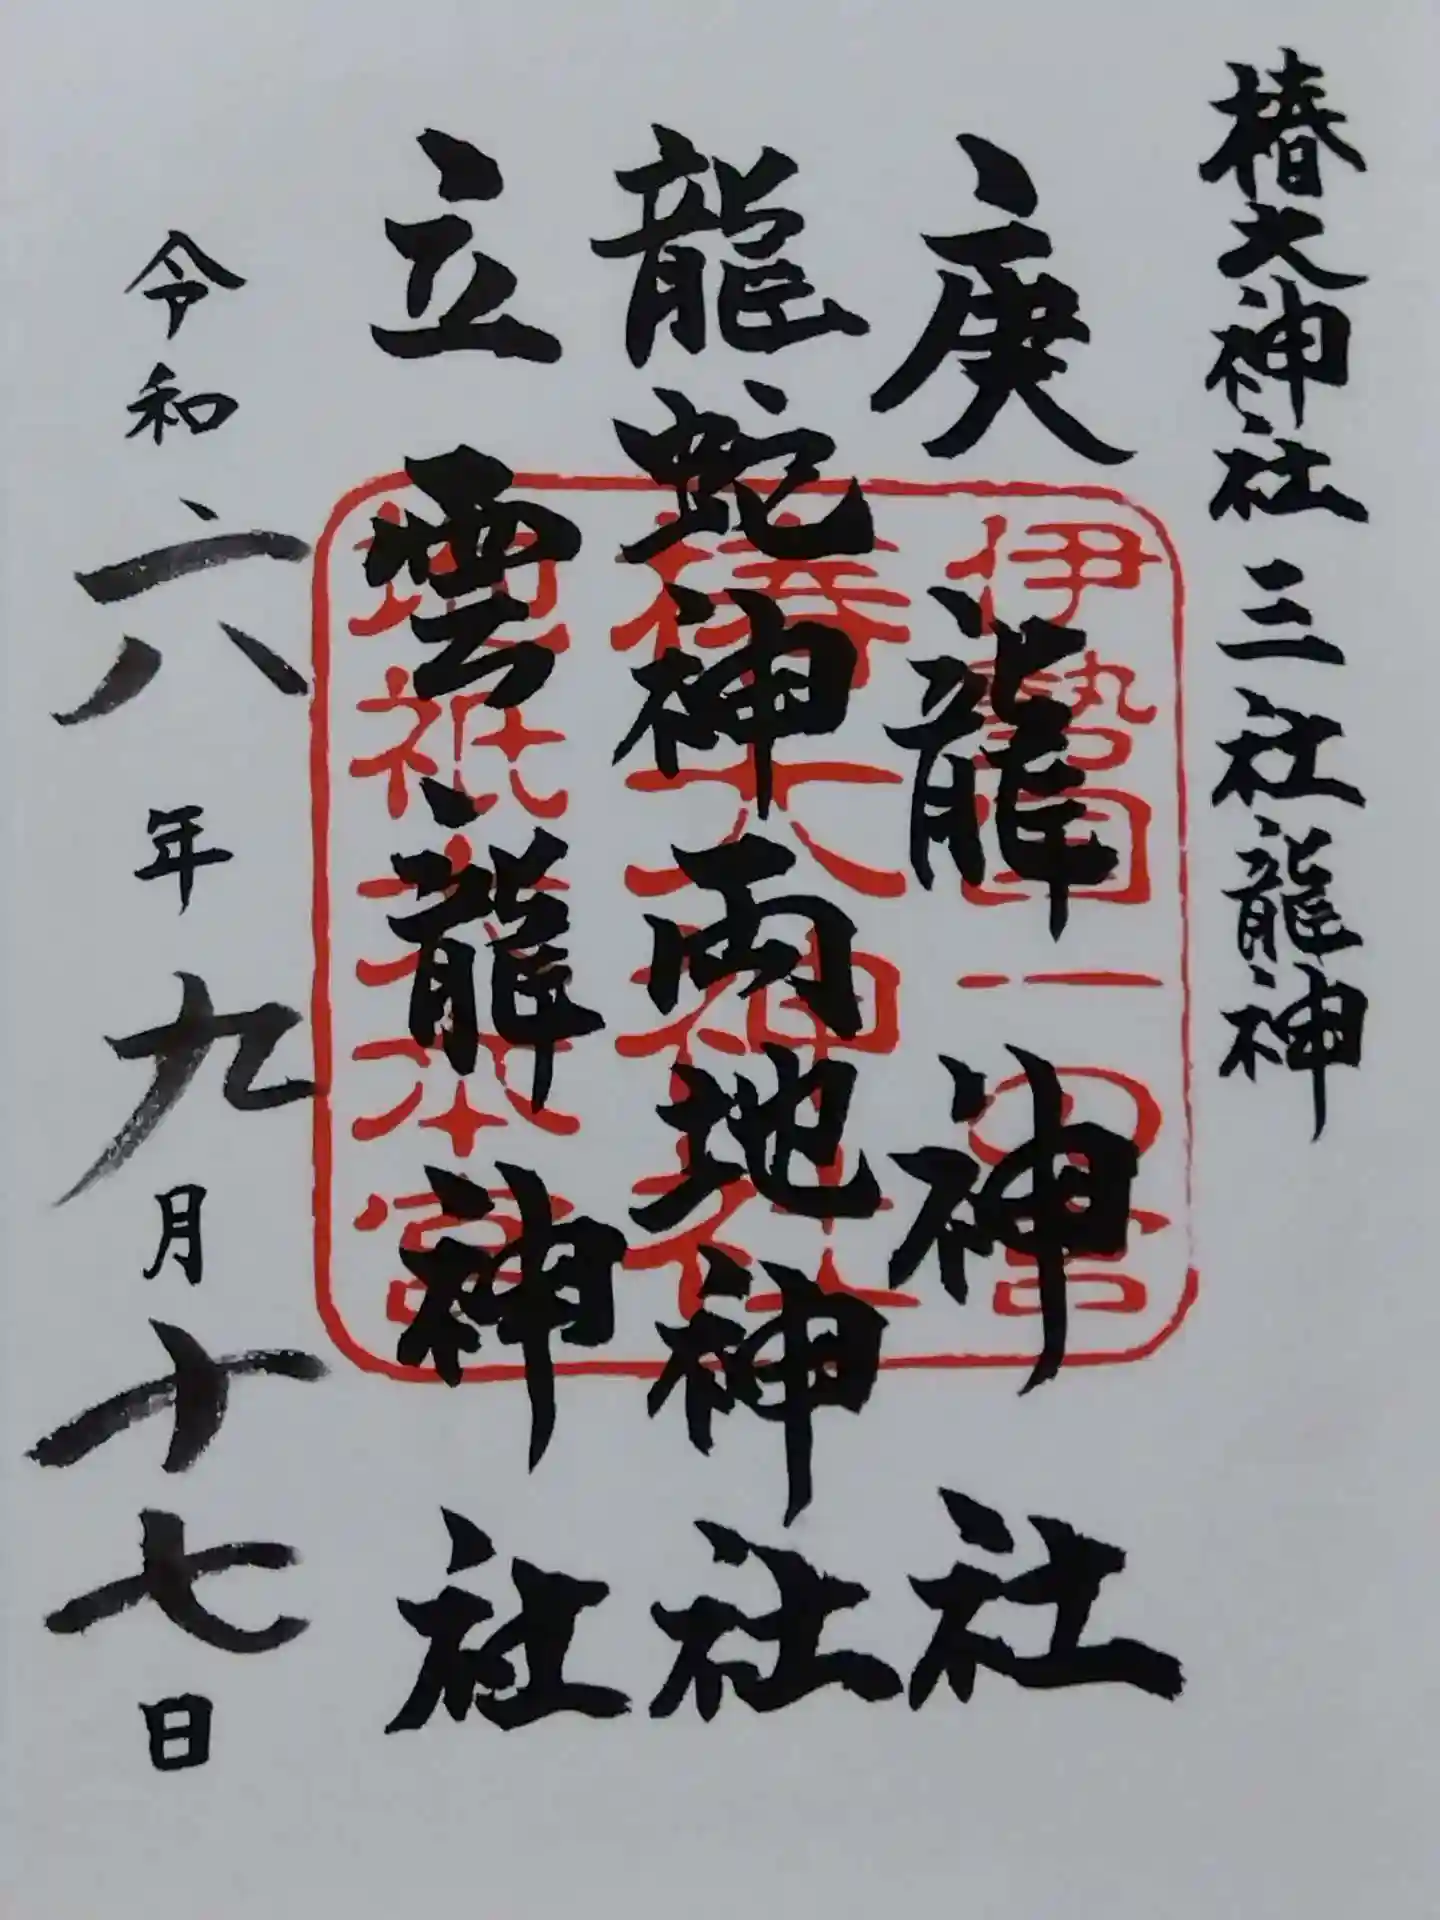 椿大神社三社龍神
庚龍神社
龍蛇神両地神社
立雲龍神社
令和六年九月十七日
伊勢国一の宮
椿大神社
地祇猿田彦大本宮